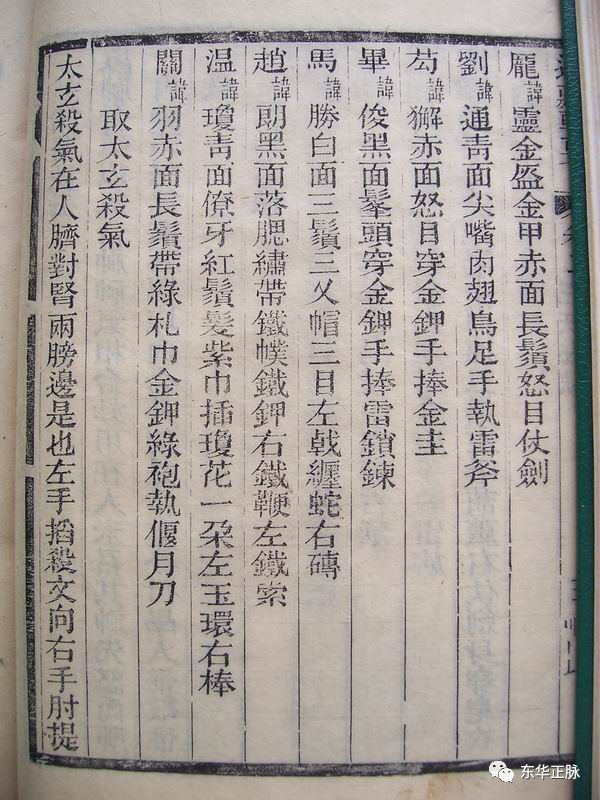 龐諱靈金盔金甲赤面長鬚怒目仗劍
劉諱通靑面尖嘴肉翅鳥足手執雷斧
芶諱獬赤面怒目穿金鉀手捧金圭
畢諱俊黑面鬅頭穿金鉀手捧雷鎖鍊
馬諱勝白面三鬚三乂帽三目左戟纏蛇右磚
趙諱朗黑面落腮繡帶鐵幞鐵鉀右鐵鞭左鐵索
温諱瓊靑面僚牙紅鬚髮紫巾插瓊花一朶左玉環右棒
關諱羽赤面長鬚帶綠札巾金鉀綠袍執偃月刀
取太玄殺氣
太玄殺氣在人臍對腎兩膀邊是也左手掐殺文向右手肘提
东华正脉